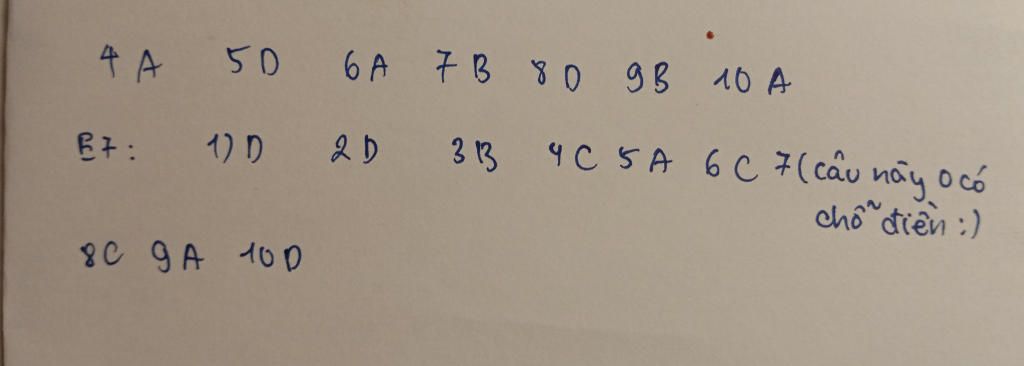 4 A 5 D 6 A 7 B 8 D 9 B 10 A
E7: 1) D 2 D 3 B 4 C 5 A 6 C 7 (câu này 0 có
chỗ điền :)
8C 9 A 10 D